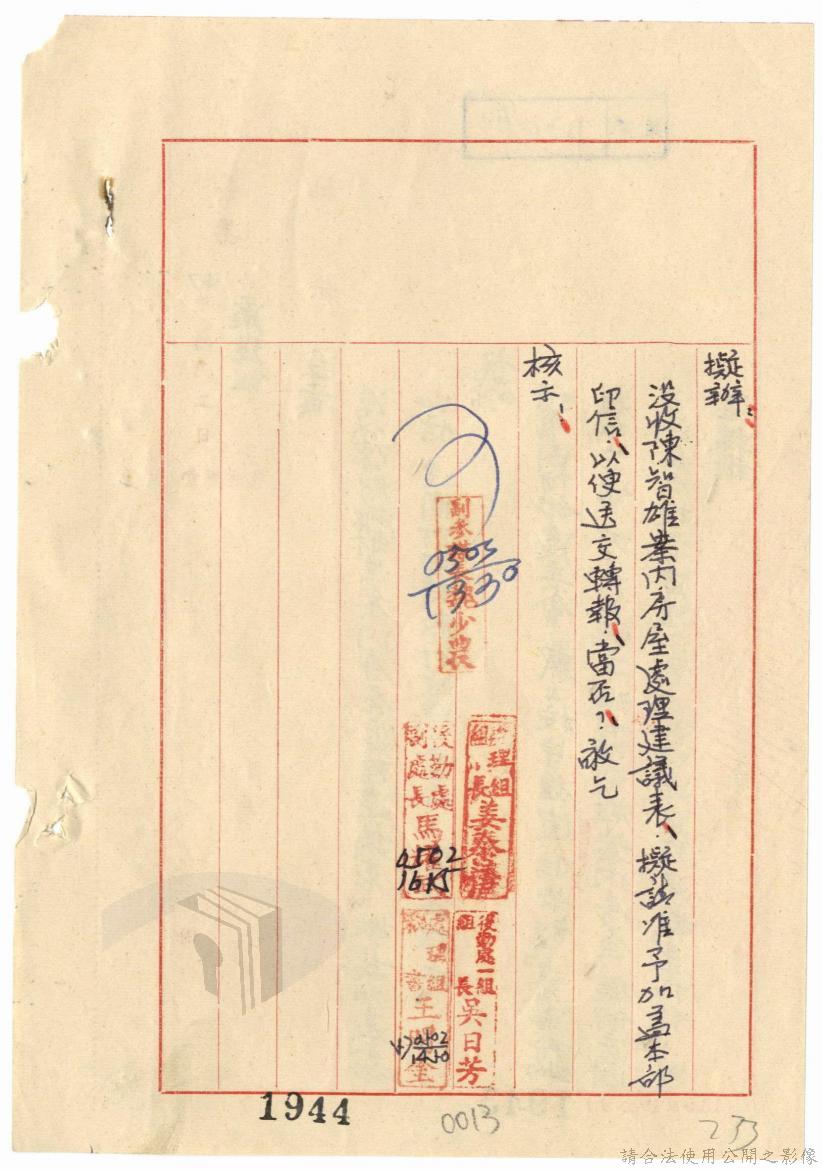 擬辦：
没收陳智雄案内房屋處理建議表，擬請准予加蓋本部
印信，以便送文轉報，當否？敬乞
核示！
副參謀長魏少農
0503
1330
處理組
組長姜
後勤處
副處長馬
0502
1615
後勤處一組
組長吳日芳
處理組
王
0502
1450
1944
0013
233
請合法使用公開之影像